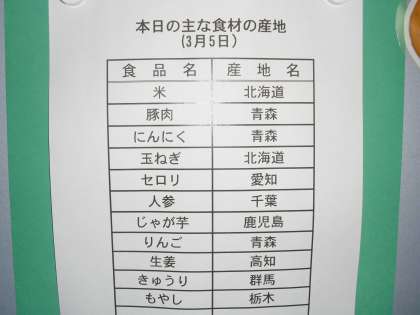 本日の主な食材の産地
(3月5日)
食品名 産地名
米 北海道
豚肉 青森
にんにく 青森
玉ねぎ 北海道
セロリ 愛知
人参 千葉
じゃが芋 鹿児島
りんご 青森
生姜 高知
きゅうり 群馬
もやし 栃木